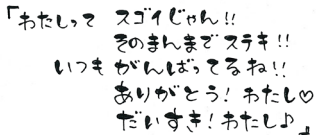 「わたしって スゴイじゃん!!
そのまんまでステキ!!
いつも がんばってるね!!
ありがとう! わたし♡
だいすき! わたし♪」